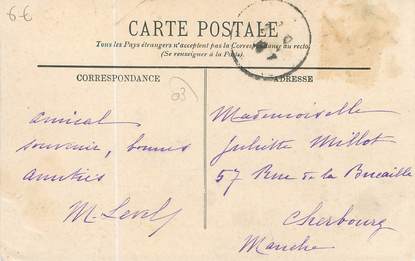 6-6
CARTE POSTALE
Tous les Pays étrangers n'acceptent pas la Correspondance au recto.
(Se renseigner à la Poste).
CORRESPONDANCE
ADRESSE
03
amical
souvenir, bonnes
amitiés
Mademoiselle
Juliette Millot
57 Rue de la Bucaille
Cherbourg
Manche